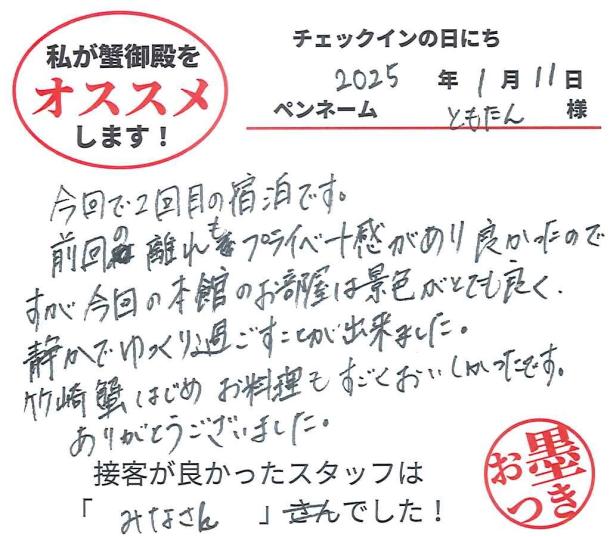 私が蟹御殿を
オススメ
します！
チェックインの日にち
2025 年 1 月 11 日
ペンネーム ともたん 様
今回で2回目の宿泊です。
前回の離れもプライベート感があり良かったので
すが今回の本館のお部屋は景色がとても良く、
静かでゆっくり過ごすことが出来ました。
竹崎蟹はじめお料理もすごくおいしかったです。
ありがとうございました。
接客が良かったスタッフは
「 みなさん 」さんでした！
お墨
つき